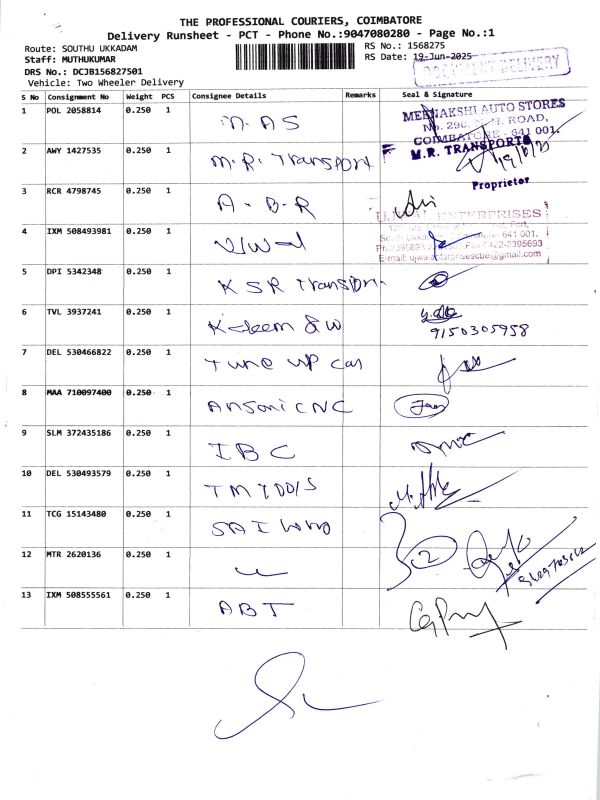 THE PROFESSIONAL COURIERS, COIMBATORE
Delivery Runsheet - PCT - Phone No.:9047080280 - Page No.:1
Route: SOUTHU UKKADAM
RS No.: 1568275
Staff: MUTHUKUMAR
RS Date: 19-Jun-2025
DRS No.: DCJB156827501
DOCUMENT DELIVERY
Vehicle: Two Wheeler Delivery
S No Consignment No Weight PCS Consignee Details Remarks Seal & Signature
1 POL 2058814 0.250 1 M.A S
MEENAKSHI AUTO STORES
ROAD,
COIMBATORE - 641 001.
2 AWY 1427535 0.250 1 M.R. Transport
M.R. TRANSPORT
Proprietor
3 RCR 4798745 0.250 1 A.B.R
ENTERPRISES
4 IXM 508493981 0.250 1
641 001.
0422-2395693
5 DPI 5342348 0.250 1 KSR Transport
6 TVL 3937241 0.250 1
9150305958
7 DEL 530466822 0.250 1 Tune up car
8 MAA 710097400 0.250 1 Ansoni CNC
9 SLM 372435186 0.250 1 IBC
10 DEL 530493579 0.250 1 TM Tools
11 TCG 15143480 0.250 1 SAI
12 MTR 2620136 0.250 1
13 IXM 508555561 0.250 1 ABT